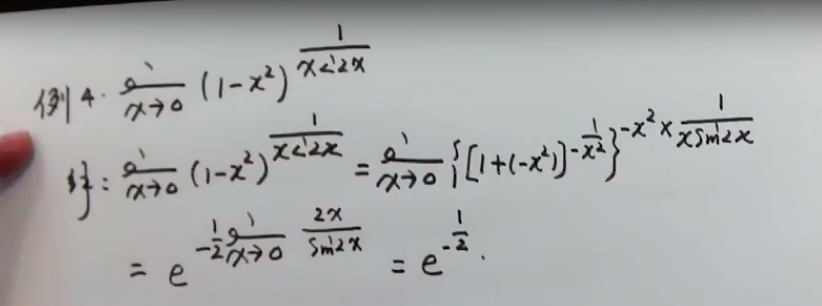 例4. lim x→0 (1-x²)^{1/(x sin2x)}
解: lim x→0 (1-x²)^{1/(x sin2x)} = lim x→0 {[1+(-x²)]^{-1/x²}}^{-x² × 1/(x sin2x)}
= e^{-1/2 lim x→0 2x/sin2x} = e^{-1/2}.